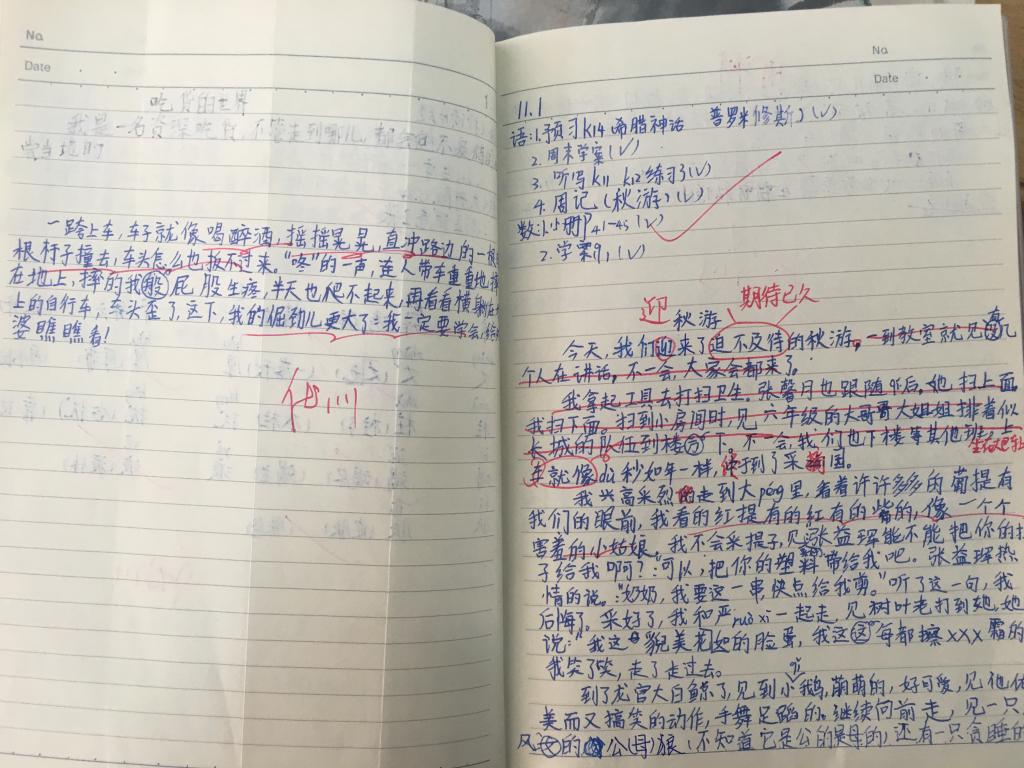 No.
Date
吃货的世界
我是一名资深吃货，不管走到哪儿，都
尝当地的
一跨上车，车子就像喝醉酒，摇摇晃晃，直冲路边的一根
根杆子撞去，车头怎么也扳不过来。“咚”的一声，连人带车重重地摔
在地上，摔的我屁股生疼，半天也爬不起来，再看看横躺在地
上的自行车，车头歪了，这下，我的倔劲儿更大了：我一定要学会，给
婆瞧瞧看！
No.
Date
11.1
语：1.预习K14希腊神话 普罗米修斯）（√）
2.周末学案（√）
3.听写K11 K12练习3（√）
4.周记（秋游）（√）
数：1.小册P41-45（√）
2.学案9，（√）
迎 期待已久
秋游
今天，我们迎来了迫不及待的秋游，一到教室就见几
个人在讲话，不一会，大家会都来了。
我拿起工具去打扫卫生。张馨月也跟随其后，她，扫上面
我扫下面。扫到小房间时，见六年级的大哥哥大姐姐排着似
长城的队伍到楼下。不一会，我们也下楼等其他班，上
车就像dù秒如年一样，终于到了采摘园。
我兴高采烈的走到大péng里，看着许许多多的葡提有
我们的眼前，我看的红提有的红有的紫的，像一个个
害羞的小姑娘。我不会采提子，见张益琛能不能把你的扌
子给我啊？“可以，把你的塑料带给我”吧。张益琛热
情的说。“奶奶，我要这一串快点给我剪。”听了这一句，我
后悔了。采好了，我和严ruò xi一起走，见树叶老打到她，她
说：“我这貌美花如的脸蛋，我这每都擦xxx霜的
我笑了笑，走了走过去。
到了龙宫大白鲸了，见到小鹅，萌萌的，好可爱，见他优
美而又搞笑的动作，手舞足蹈的。继续向前走，见一只
的公（母）狼（不知道它是公的是母的）还有一只贪睡的